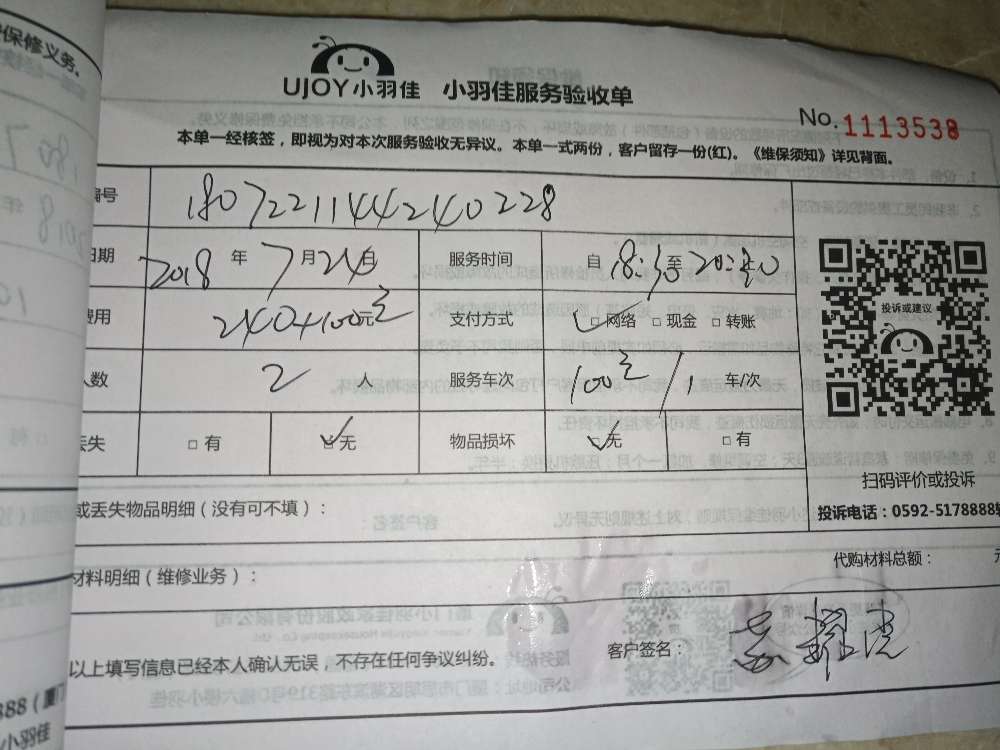 保修义务、
UJOY小羽佳 小羽佳服务验收单
No.1113538
本单一经核签，即视为对本次服务验收无异议。本单一式两份，客户留存一份(红)。《维保须知》详见背面。
编号 1807221144240228
日期 2018 年 7 月 24 日 服务时间 自 18:30 至 20:30
费用 240+100元 支付方式 □网络 □现金 □转账
人数 2 人 服务车次 100元/1 车/次
丢失 □有 ☑无 物品损坏 ☑无 □有
投诉或建议
扫码评价或投诉
投诉电话：0592-5178888转
或丢失物品明细（没有可不填）：
材料明细（维修业务）： 代购材料总额： 元
以上填写信息已经本人确认无误，不存在任何争议纠纷。 客户签名：
888（厦门
小羽佳